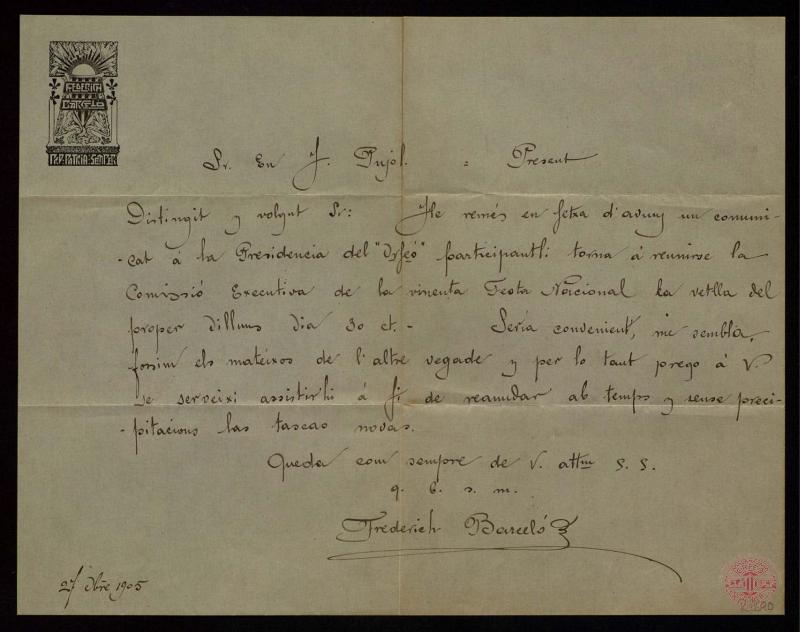 FEDERICH
BARCELO
PER PATRIA SEMPER
Sr. En J. Pujol. = Present
Distingit y volgut Sr: He remés en fetxa d'avuy un comuni-
-cat á la Presidencia del "Orfeó" participantli torna á reunirse la
Comissió Executiva de la vinenta Festa Nacional la vetlla del
proper dilluns dia 30 ct. - Sería convenient, me sembla,
fossim els mateixos de l'altre vegade y per lo tant prego á V.
se serveixi assistirhi á fi de reanudar ab temps y sense preci-
-pitacions las tascas novas.
Queda com sempre de V. attm S. S.
q. b. s. m.
Frederich Barceló
27 8bre 1905